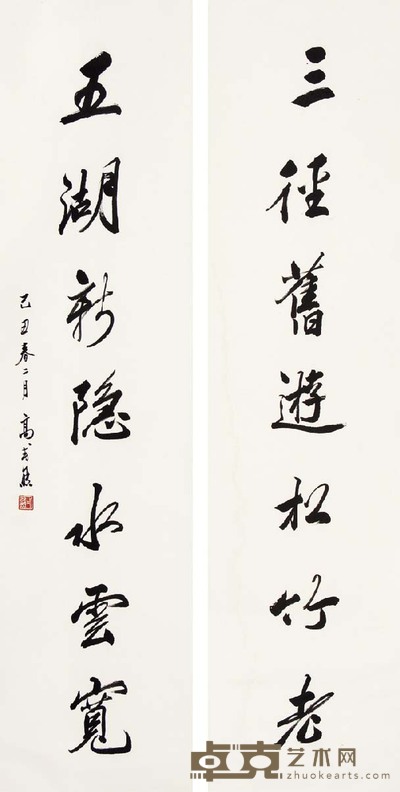 三徑舊遊松竹老
五湖新隐水雲寬
己丑春二月 高式熊
卓克艺术网
zhuokearts.com